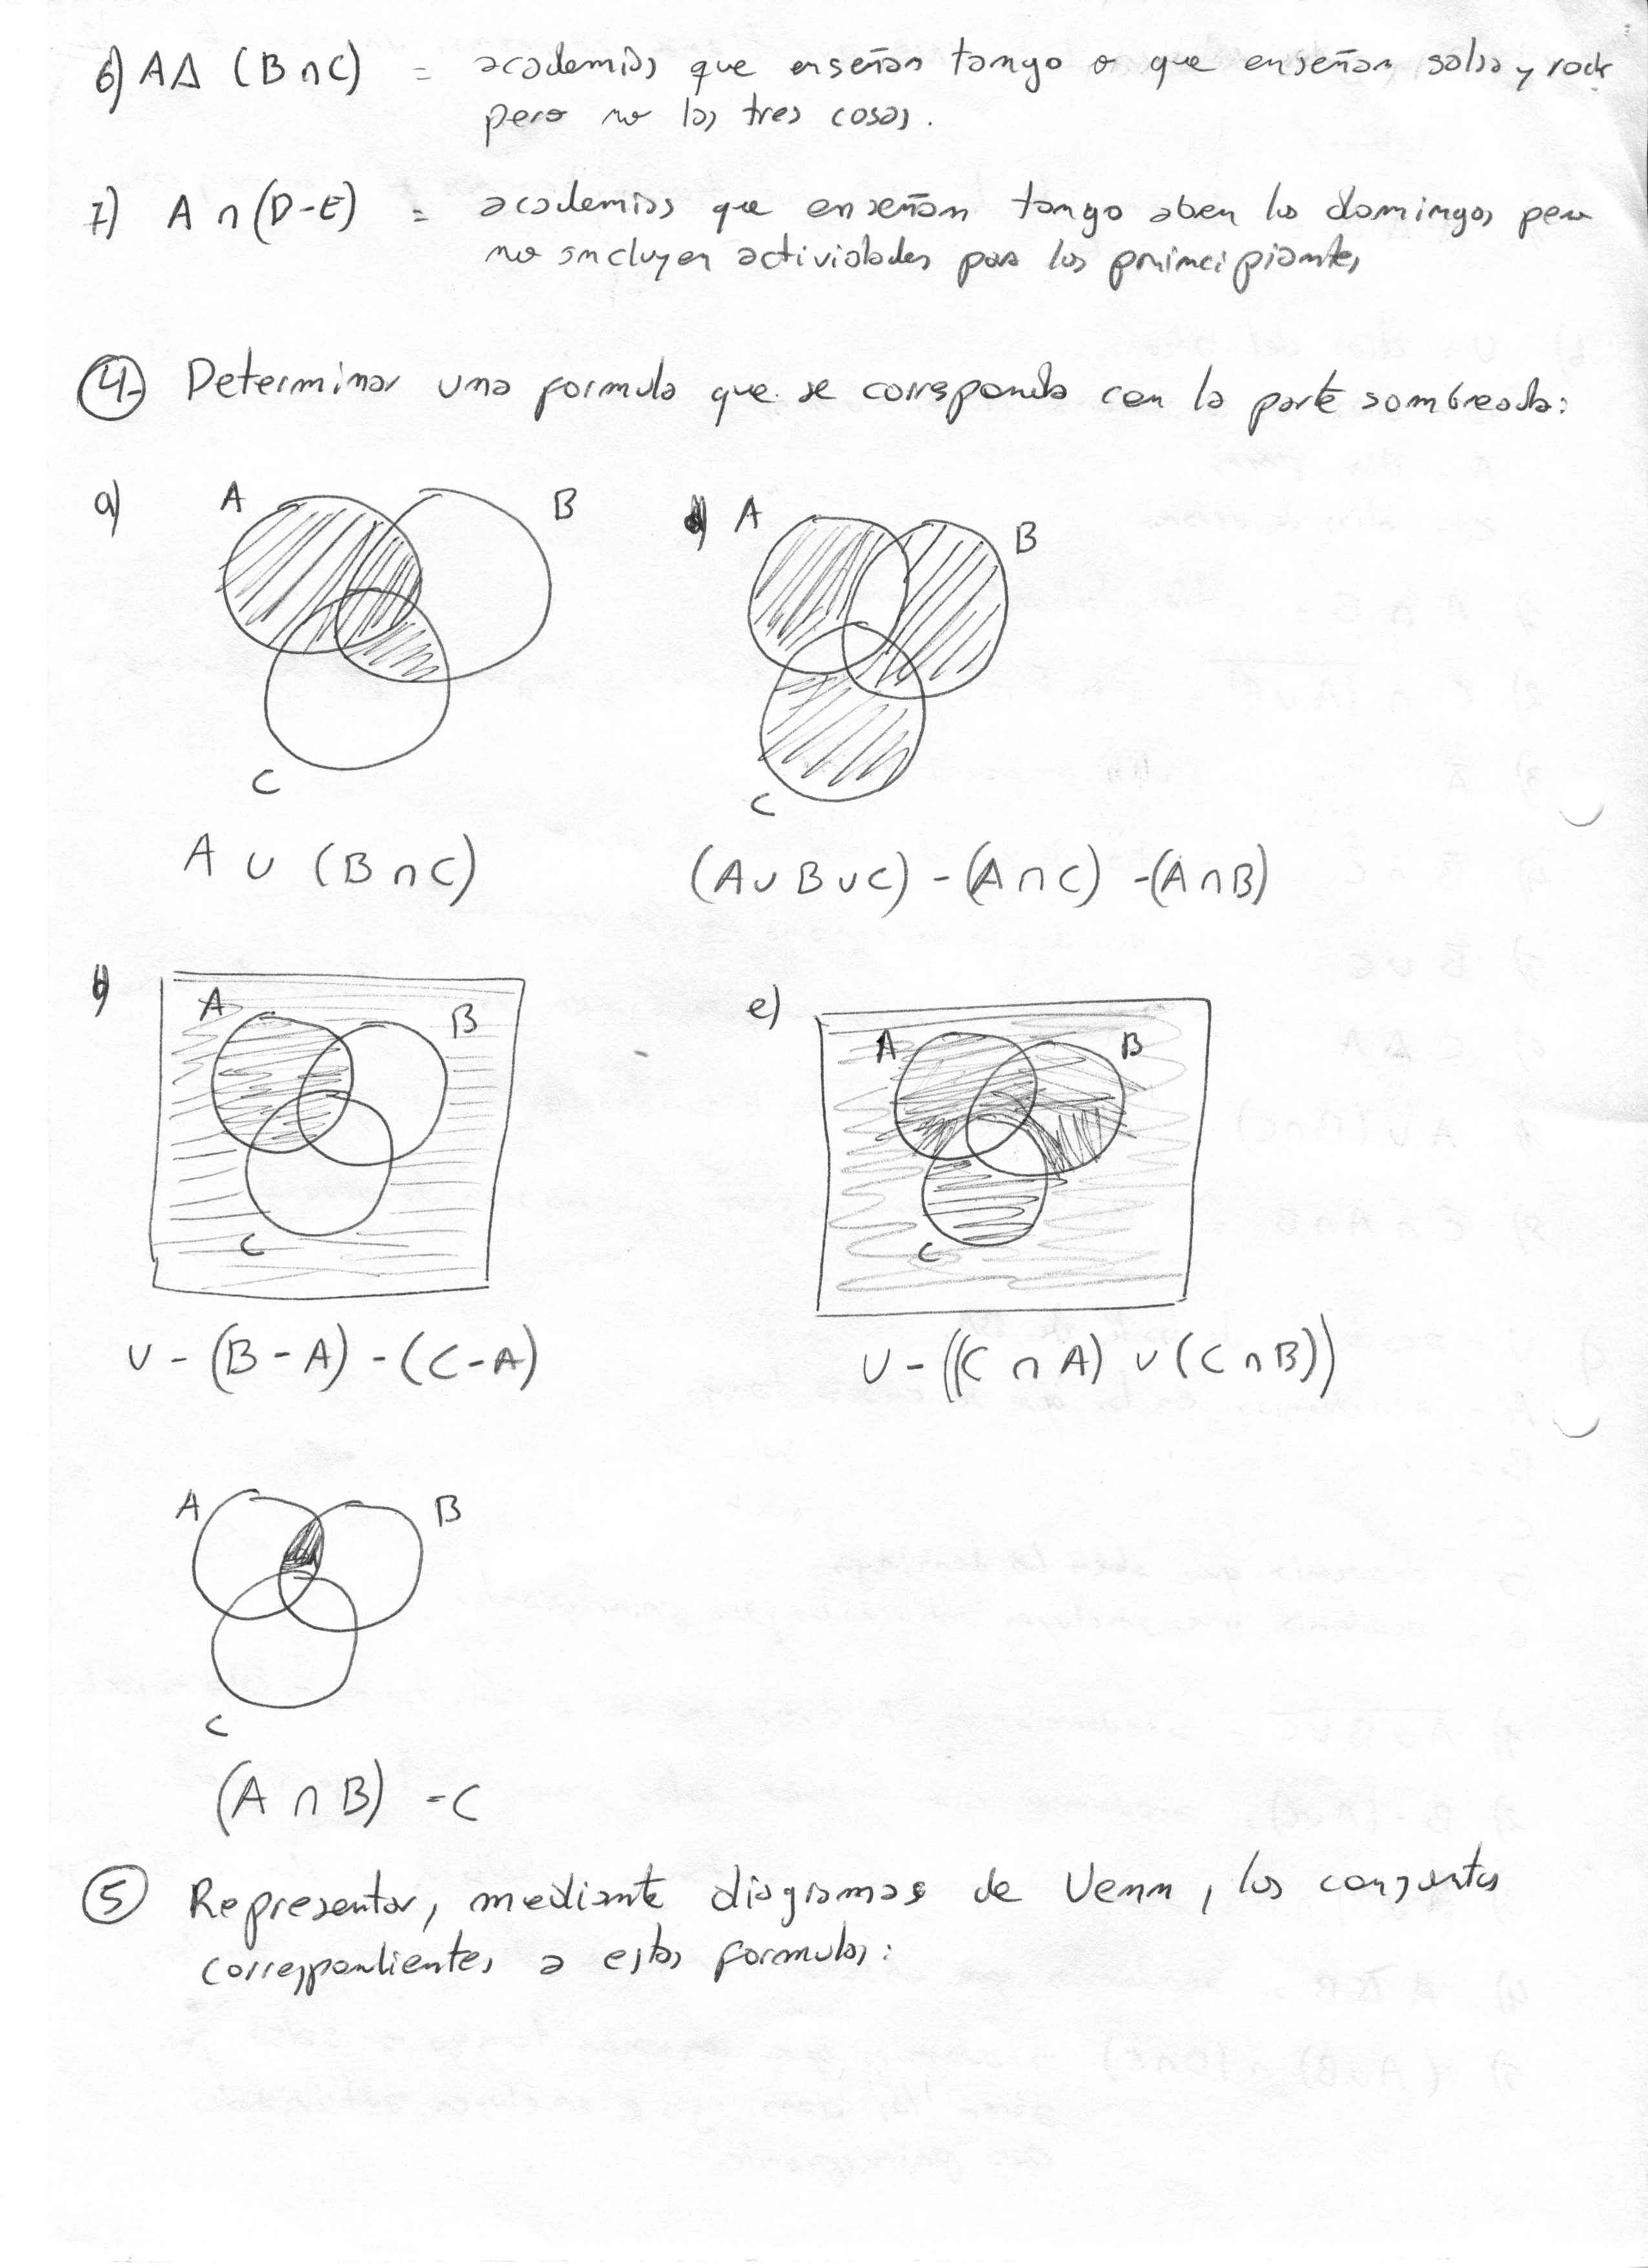 6) A∆ (B∩C) = academias que enseñan tango o que enseñan salsa y rock
pero no las tres cosas.
7) A ∩ (D-E) = academias que enseñan tango aben los domingos pero
no incluyen actividades para los principiantes
4. Determinar una formula que se corresponda con la parte sombreada:
a) A B C
A ∪ (B∩C)
d) A B C
(A∪B∪C) - (A∩C) -(A∩B)
b) A B C
U - (B-A) - (C-A)
e) A B C
U - ((C∩A) ∪ (C∩B))
A B C
(A∩B) -C
5 Representar, mediante diagramas de Venn, los conjuntos
correspondientes a estas formulas: